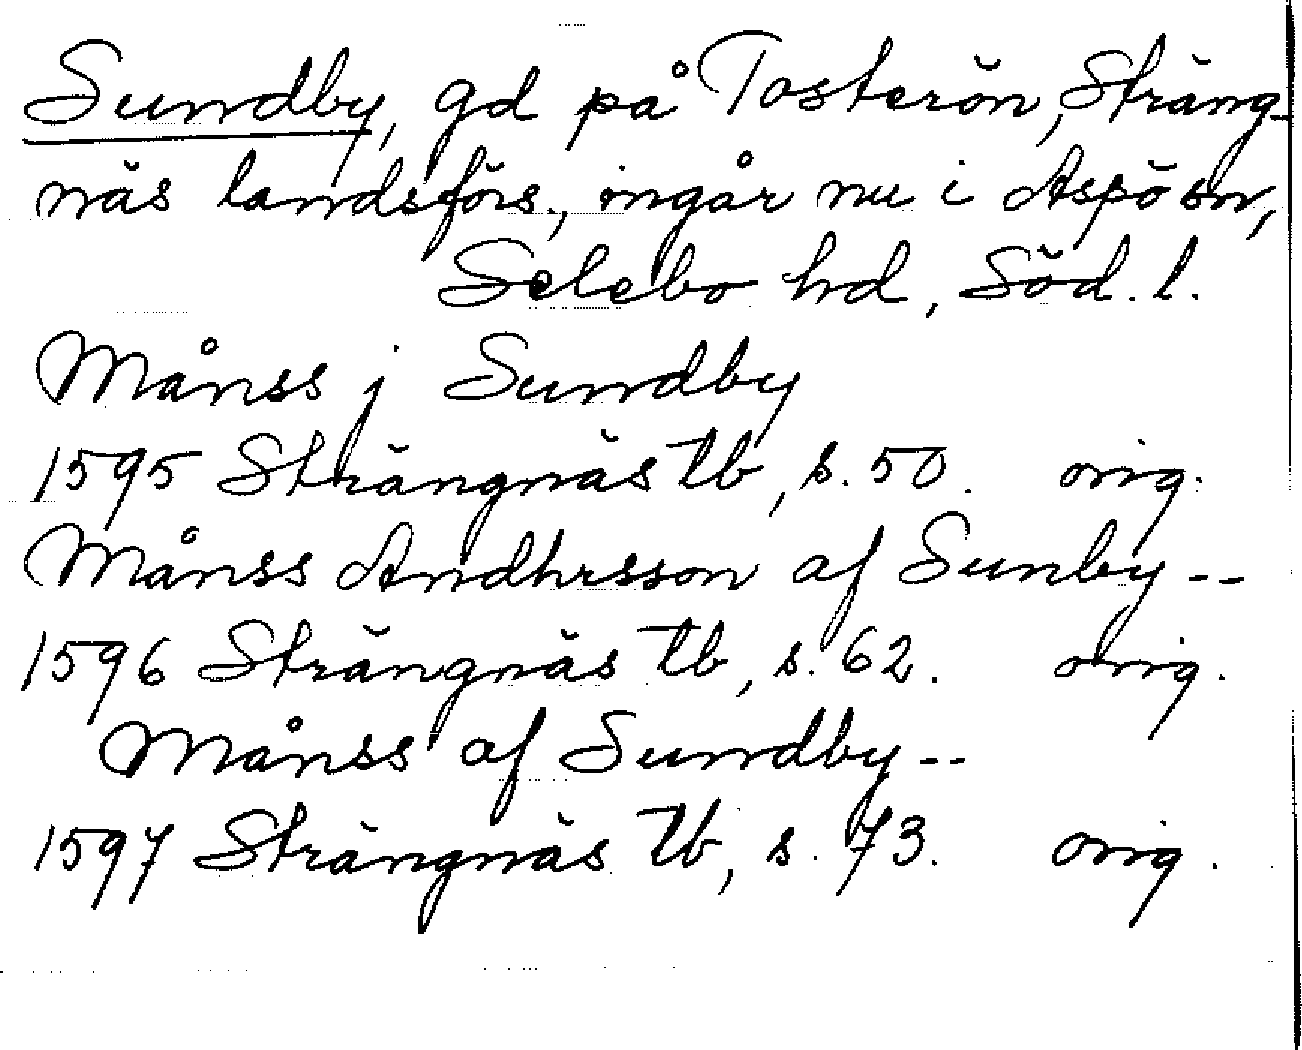 Sundby, gd på Tosterön, Sträng-
näs landsförs., ingår nu i Aspö sn,
Selebo hd, Söd. l.
Månss j Sundby
1595 Strängnäs tb, s. 50. orig.
Månss Andhrsson af Sunby--
1596 Strängnäs tb, s. 62. orig.
Månss af Sundby--
1597 Strängnäs tb, s. 73. orig.